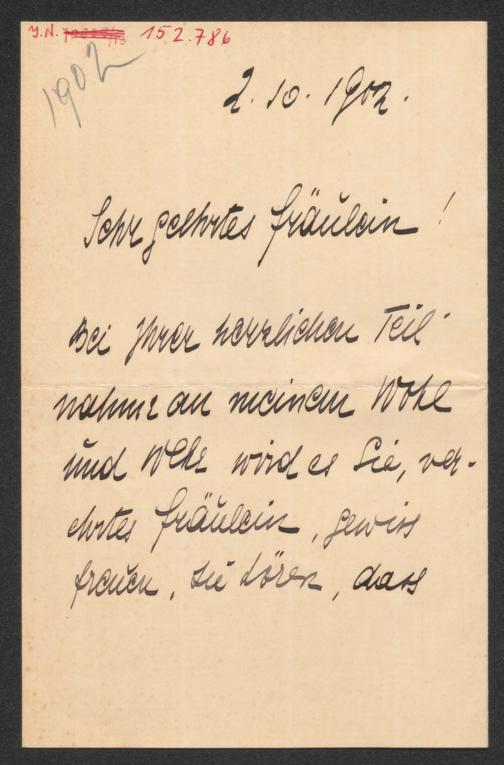 J.N. 152.786
1902
2. 10. 1902.
Sehr geehrtes Fräulein!
Bei Ihrer herzlichen Teil-
nahme an meinem Wohl
und Wehe wird es Sie, ver-
ehrtes Fräulein, gewiss
freuen, zu hören, dass